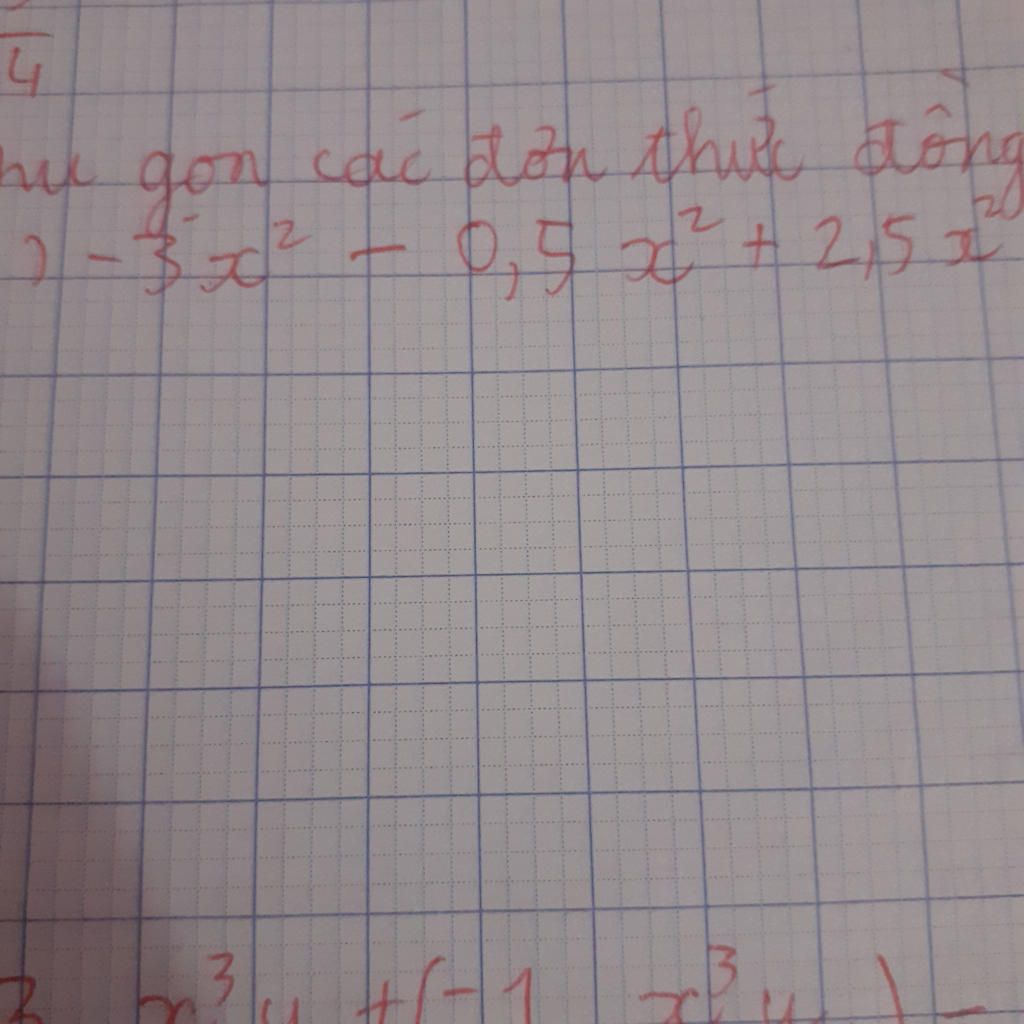 4
gọn các đơn thức đồng
) - 3x² - 0,5 x² + 2,5 x²
3 x³y + (-1 x³y ) -